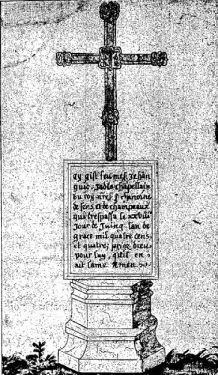 cy gist feu mes. Jehan
guio, Jadis chapellain
du roy nres. & chanoine
de sens et de champeaux
qui trespassa le xxviii
Jour de Juing lan de
grace mil quatre cens
et quatre, priez dieu
pour luy, quil en
ait lame Amen